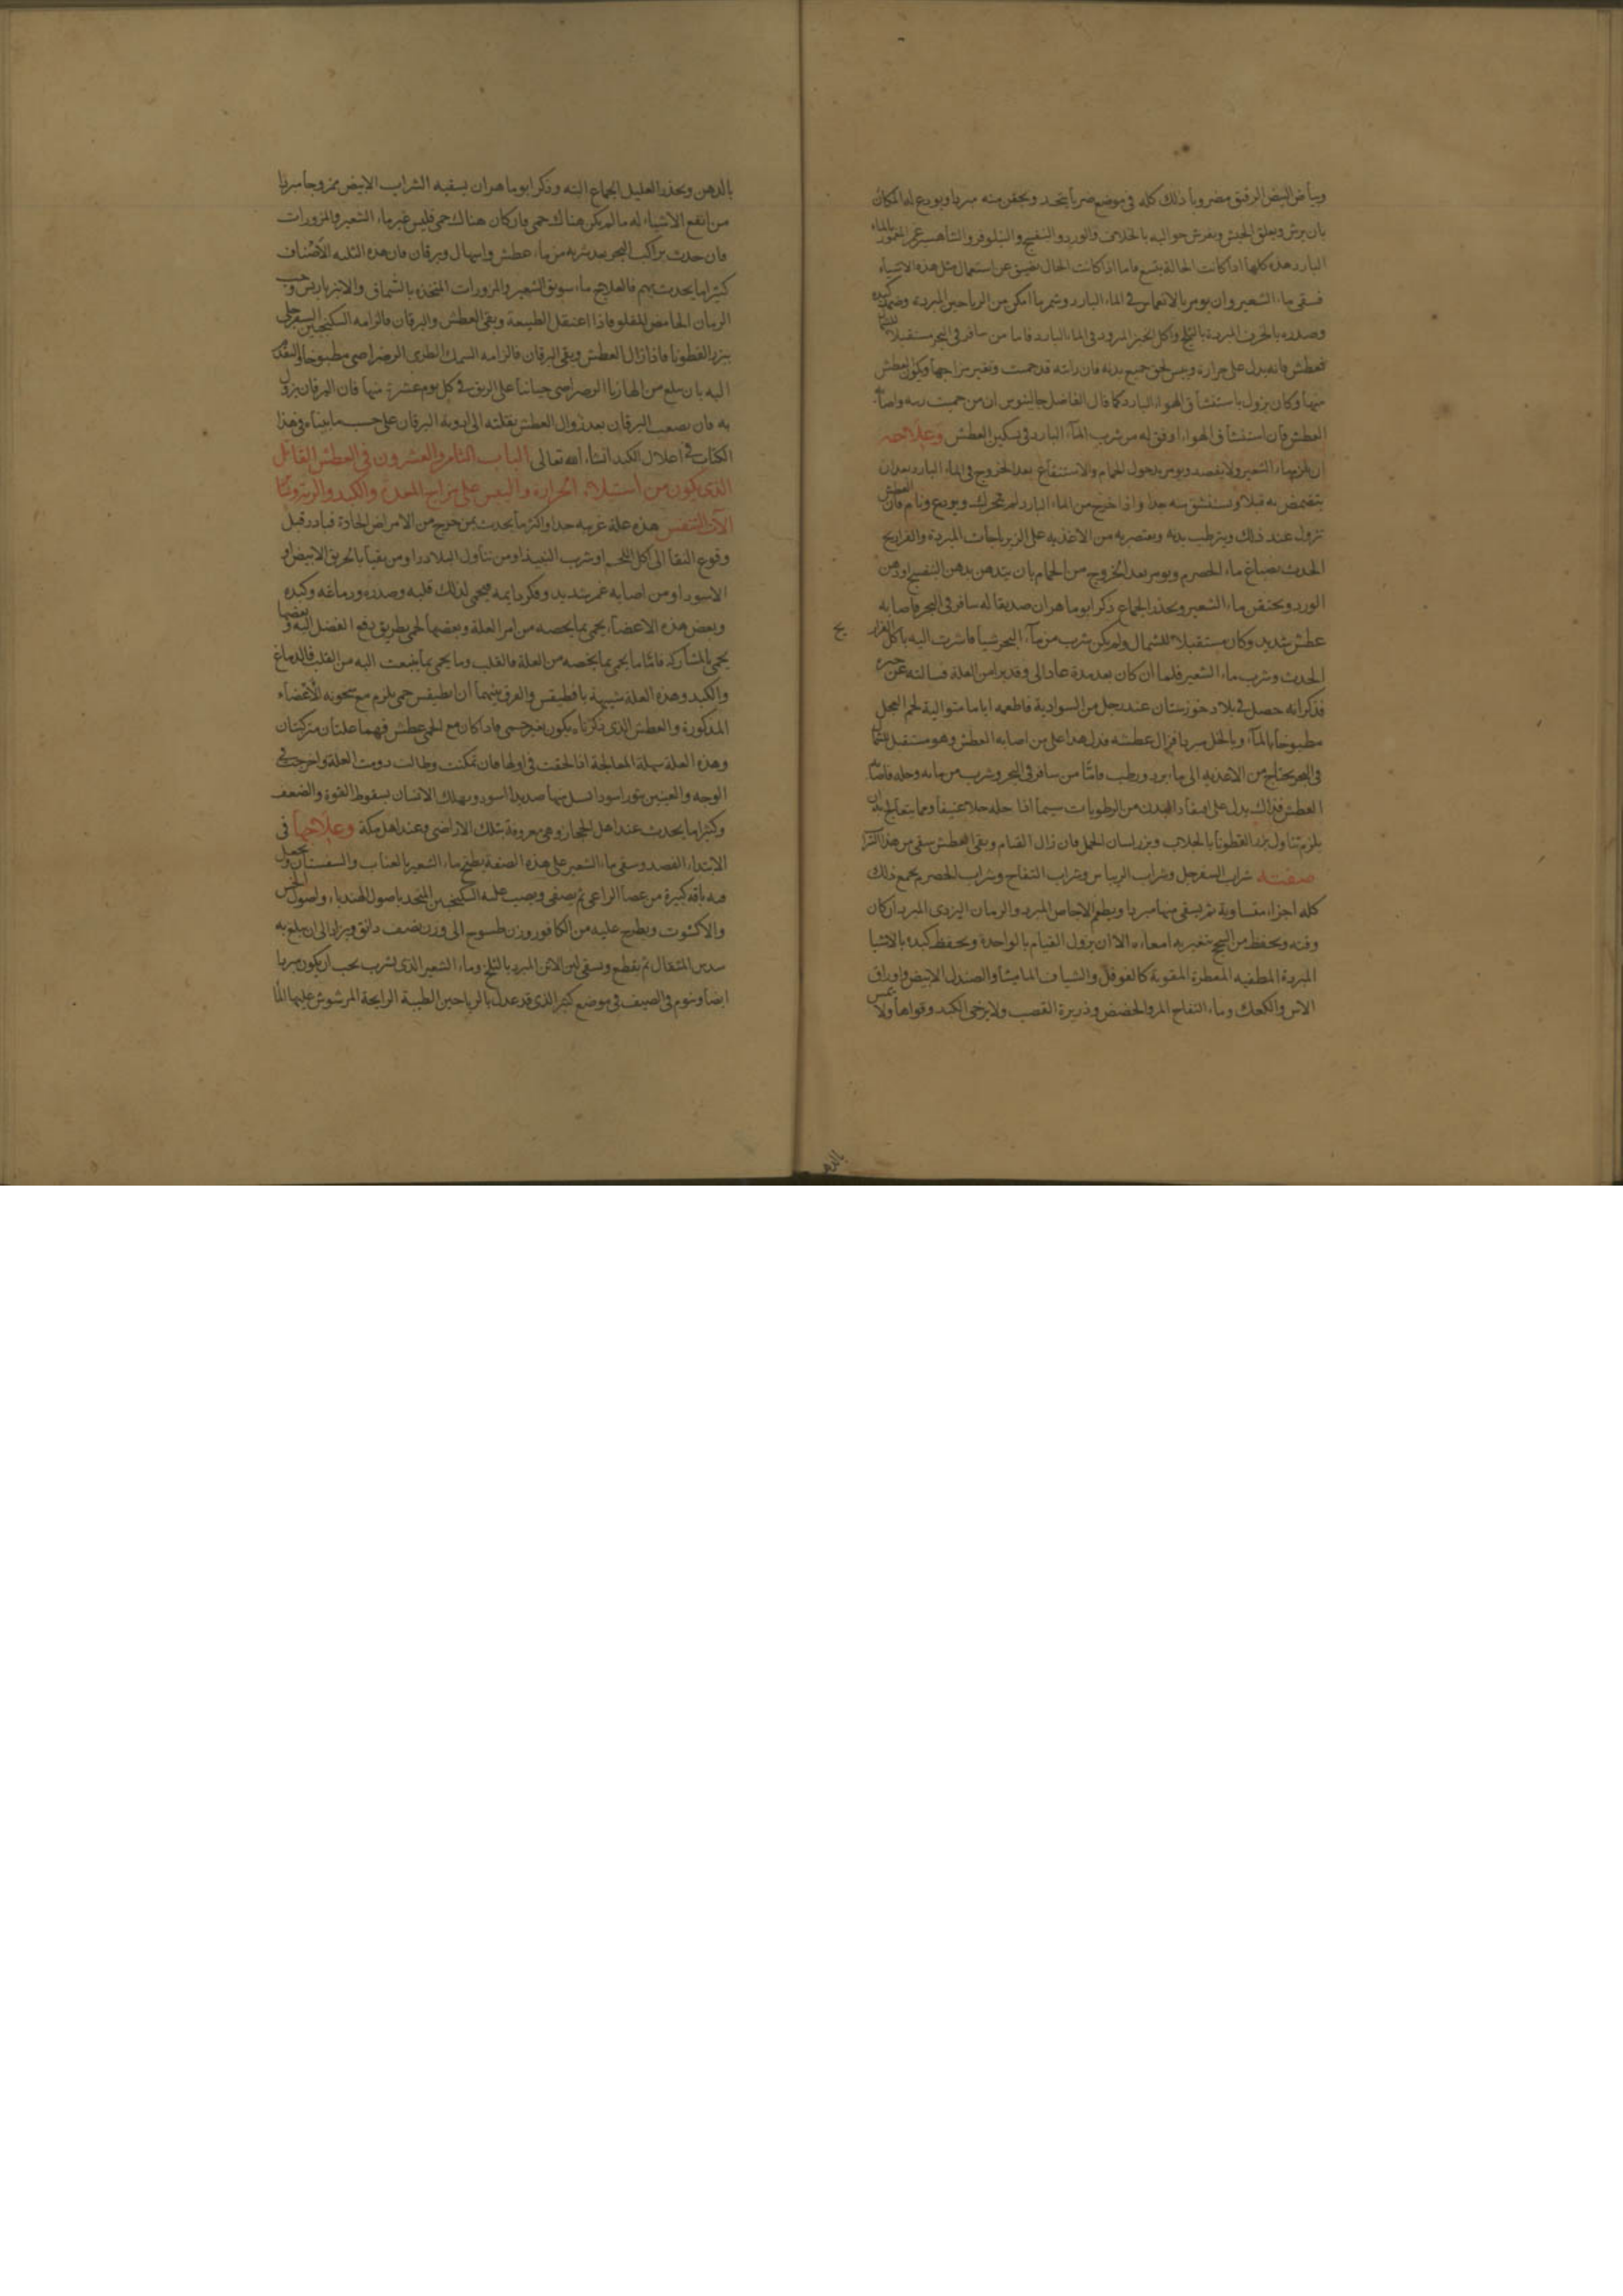 وبياض البيض الرقيق مضروبا ذلك كله في موضع ضربا يتحد ويحقن منه مبردا ويودع له المكان
بان يرش ويعلق الخيش ويفرش حواليه بالخلاف والورد والبنفسج والنيلوفر والشاهسفرم المغمور بالماء
البارد هذه كلها اذا كانت الحالة يتسع فاما اذا كانت الحال تضيق عن استعمال مثل هذه الاشياء
فسقى ماء الشعير وان يومر بالانغماس في الماء البارد وشم ما امكن من الرياحين المبردة وضمد كبده
وصدره بالخرق المبردة بالثلج واكل الخبز المبرود في الماء البارد فاما من سافر في البحر مستقبلا للشمال
فعطش فانه يدل على حرارة ويبس لحق جميع بدنه فان رئته قد حميت وتغير مزاجها ويكون العطش
منها وكان يزول باستنشاق الهواء البارد كما قال الفاضل جالينوس ان من حميت ريته واصابه
العطش فان استنشاق الهواء اوفق له من شرب الماء البارد في تسكين العطش وعلاجه
ان يلزم ماء الشعير ولا يفصد ويومر بدخول الحمام والاستنقاع بعد الخروج في الماء البارد بعد ان
يتمضمض به قبلا ويستنشق منه جدا واذا خرج من الماء البارد لم يتحرك ويودع ونام فان العطش
تزول عند ذلك ويترطب بدنه ويقتصر به من الاغذية على الزيرباجات المبردة والفراريج
الحدث بصباغ ماء الحصرم ويومر بعد الخروج من الحمام بان يتدهن بدهن البنفسج او دهن
الورد ويحتقن ماء الشعير ويحذر الجماع ذكر ابو ماهر ان صديقا له سافر في البحر فاصابه
عطش شديد وكان مستقبلا للشمال ولم يكن شرب من ماء البحر شيا فاشرت اليه باكل القرار
الحدث وشرب ماء الشعير فلما ان كان بعد مدة عاد الى وقد برا من العلة فسالته عن خبره
فذكر انه حصل في بلاد خوزستان عند رجل من السوادية فاطعمه اياما متوالية لحم العجل
مطبوخا بالماء وبالخل مبردا فزال عطشه فدل هذا على من اصابه العطش وهو مستقبل الشمال
في البحر يحتاج من الاغذية الى ما يبرد ويرطب فاما من سافر في البحر وشرب من مائه وحله فاصابه
العطش فذاك يدل على انقاد البدن من الرطوبات سيما اذا حله حلا عنيفا ومما يتعالج به ان
يلزم تناول بزر القطونا بالجلاب وبزر لسان الحمل فان زال القيام وبقى العطش سقى من هذا الشراب
صفته شراب السفرجل وشراب الريباس وشراب التفاح وشراب الحصرم يجمع ذلك
كله اجزاء متساوية ثم يسقى منها مبردا ويطعم الاجاص المبرد والرمان اليزدى المبرد ان كان
وقته ويحفظ من السحج تتغير به امعاءه الا ان يزول القيام بالواحدة ويحفظ كبده بالاشيا
المبردة المطفيه المعطرة المقوية كالفوفل والشياف الماميثا والصندل الابيض واوراق
الاس والكعك وماء التفاح المر والحضض وذريرة القصب ولا يرخى الكبد وقواها ولا يمس
بالدهن
بالدهن ويحذر العليل الجماع البته وذكر ابو ماهر ان يسقيه الشراب الابيض ممزوجا مبردا
من انفع الاشياء له ما لم يكن هناك حمى فان كان هناك حمى فليس غير ماء الشعير والمزورات
فان حدث براكب البحر بعد شربه من ماءه عطش واسهال ويرقان فان هذه الثلثه الاصناف
كثيرا ما يحدث بهم فالعلاج ماء سويق الشعير والمزورات المتخذه بالسماق والانبرباريس وحب
الرمان الحامض المقلو فاذا اعتقل الطبيعة وبقى العطش واليرقان فالزامه السكنجبين السفرجلى
ببزر القطونا فاذا زال العطش وبقى اليرقان فالزامه السمك الطرى الرضراضى مطبوخا والتقدم
اليه بان يبلغ من الهازبا الرضراضى حيانا على الريق في كل يوم عشرة منها فان اليرقان يزول
به فان يصعب اليرقان بعد زوال العطش نقلته الى ادوية اليرقان على حسب ما بيناه في هذا
الكتاب في اعلال الكبد انشاء الله تعالى الباب الثامن والعشرون في العطش القاتل
الذى يكون من استيلاء الحرارة واليبس على مزاج المعدة والكبد والرية ومنا
الات التنفس هذه علة غريبه جدا واكثر ما يحدث بمن خرج من الامراض الحادة فبادر قبل
وقوع النقا الى اكل اللحم او شرب النبيذ او من تناول البلادر او من تقيا بالخربق الابيض او
الاسود او من اصابه غم شديد وفكر دايمه فيحمى لذلك قلبه وصدره ودماغه وكبده
وبعض هذه الاعضاء يحمى بما يخصه من امر العلة وبعضها يحمى بطريق دفع الفضل اليه وبعضها
يحمى بالمشاركه فاما ما يحمى بما يخصه من العلة فالقلب وما يحمى بما ينبعث اليه من القلب فالدماغ
والكبد وهذه العلة شبيهة باقطيقس والفرق بينهما ان اقطيقس حمى يلزم مع سخونه الاعضاء
المذكورة والعطش الذى ذكرناه يكون بغير حمى فاذا كان مع الحمى عطش فهما علتان مركبتان
وهذه العلة سهلة المعالجة اذا لحقت في اولها فان تمكنت وطالت دومت العلة واخرجت في
الوجه والعينين بثور اسود اتسل منها صديدا اسود ويهلك الانسان بسقوط القوة والضعف
وكثيرا ما يحدث عند اهل الحجاز وهي معروفة بتلك الاراضى وعند اهل مكة وعلاجها في
الابتداء الفصد وسقى ماء الشعير على هذه الصفة يطبخ ماء الشعير بالعناب والسفستان ويجعل
فيه باقة كبيرة من عصا الراعى ثم يصفى ويصب عليه السكنجبين المتخذ باصول الهندباء واصول الخس
والاكشوت ويطرح عليه من الكافور وزن طسوج الى وزن نصف دانق ويزاد الى ان يبلغ به
سدس المثقال ثم يقطع ويسقى لبن الاتن المبرد بالثلج وماء الشعير الذى يشرب يجب ان يكون مبردا
ايضا وينوم في الصيف في موضع كثير الندى قد عدل بالرياحين الطيبة الرايحة المرشوش عليها الما